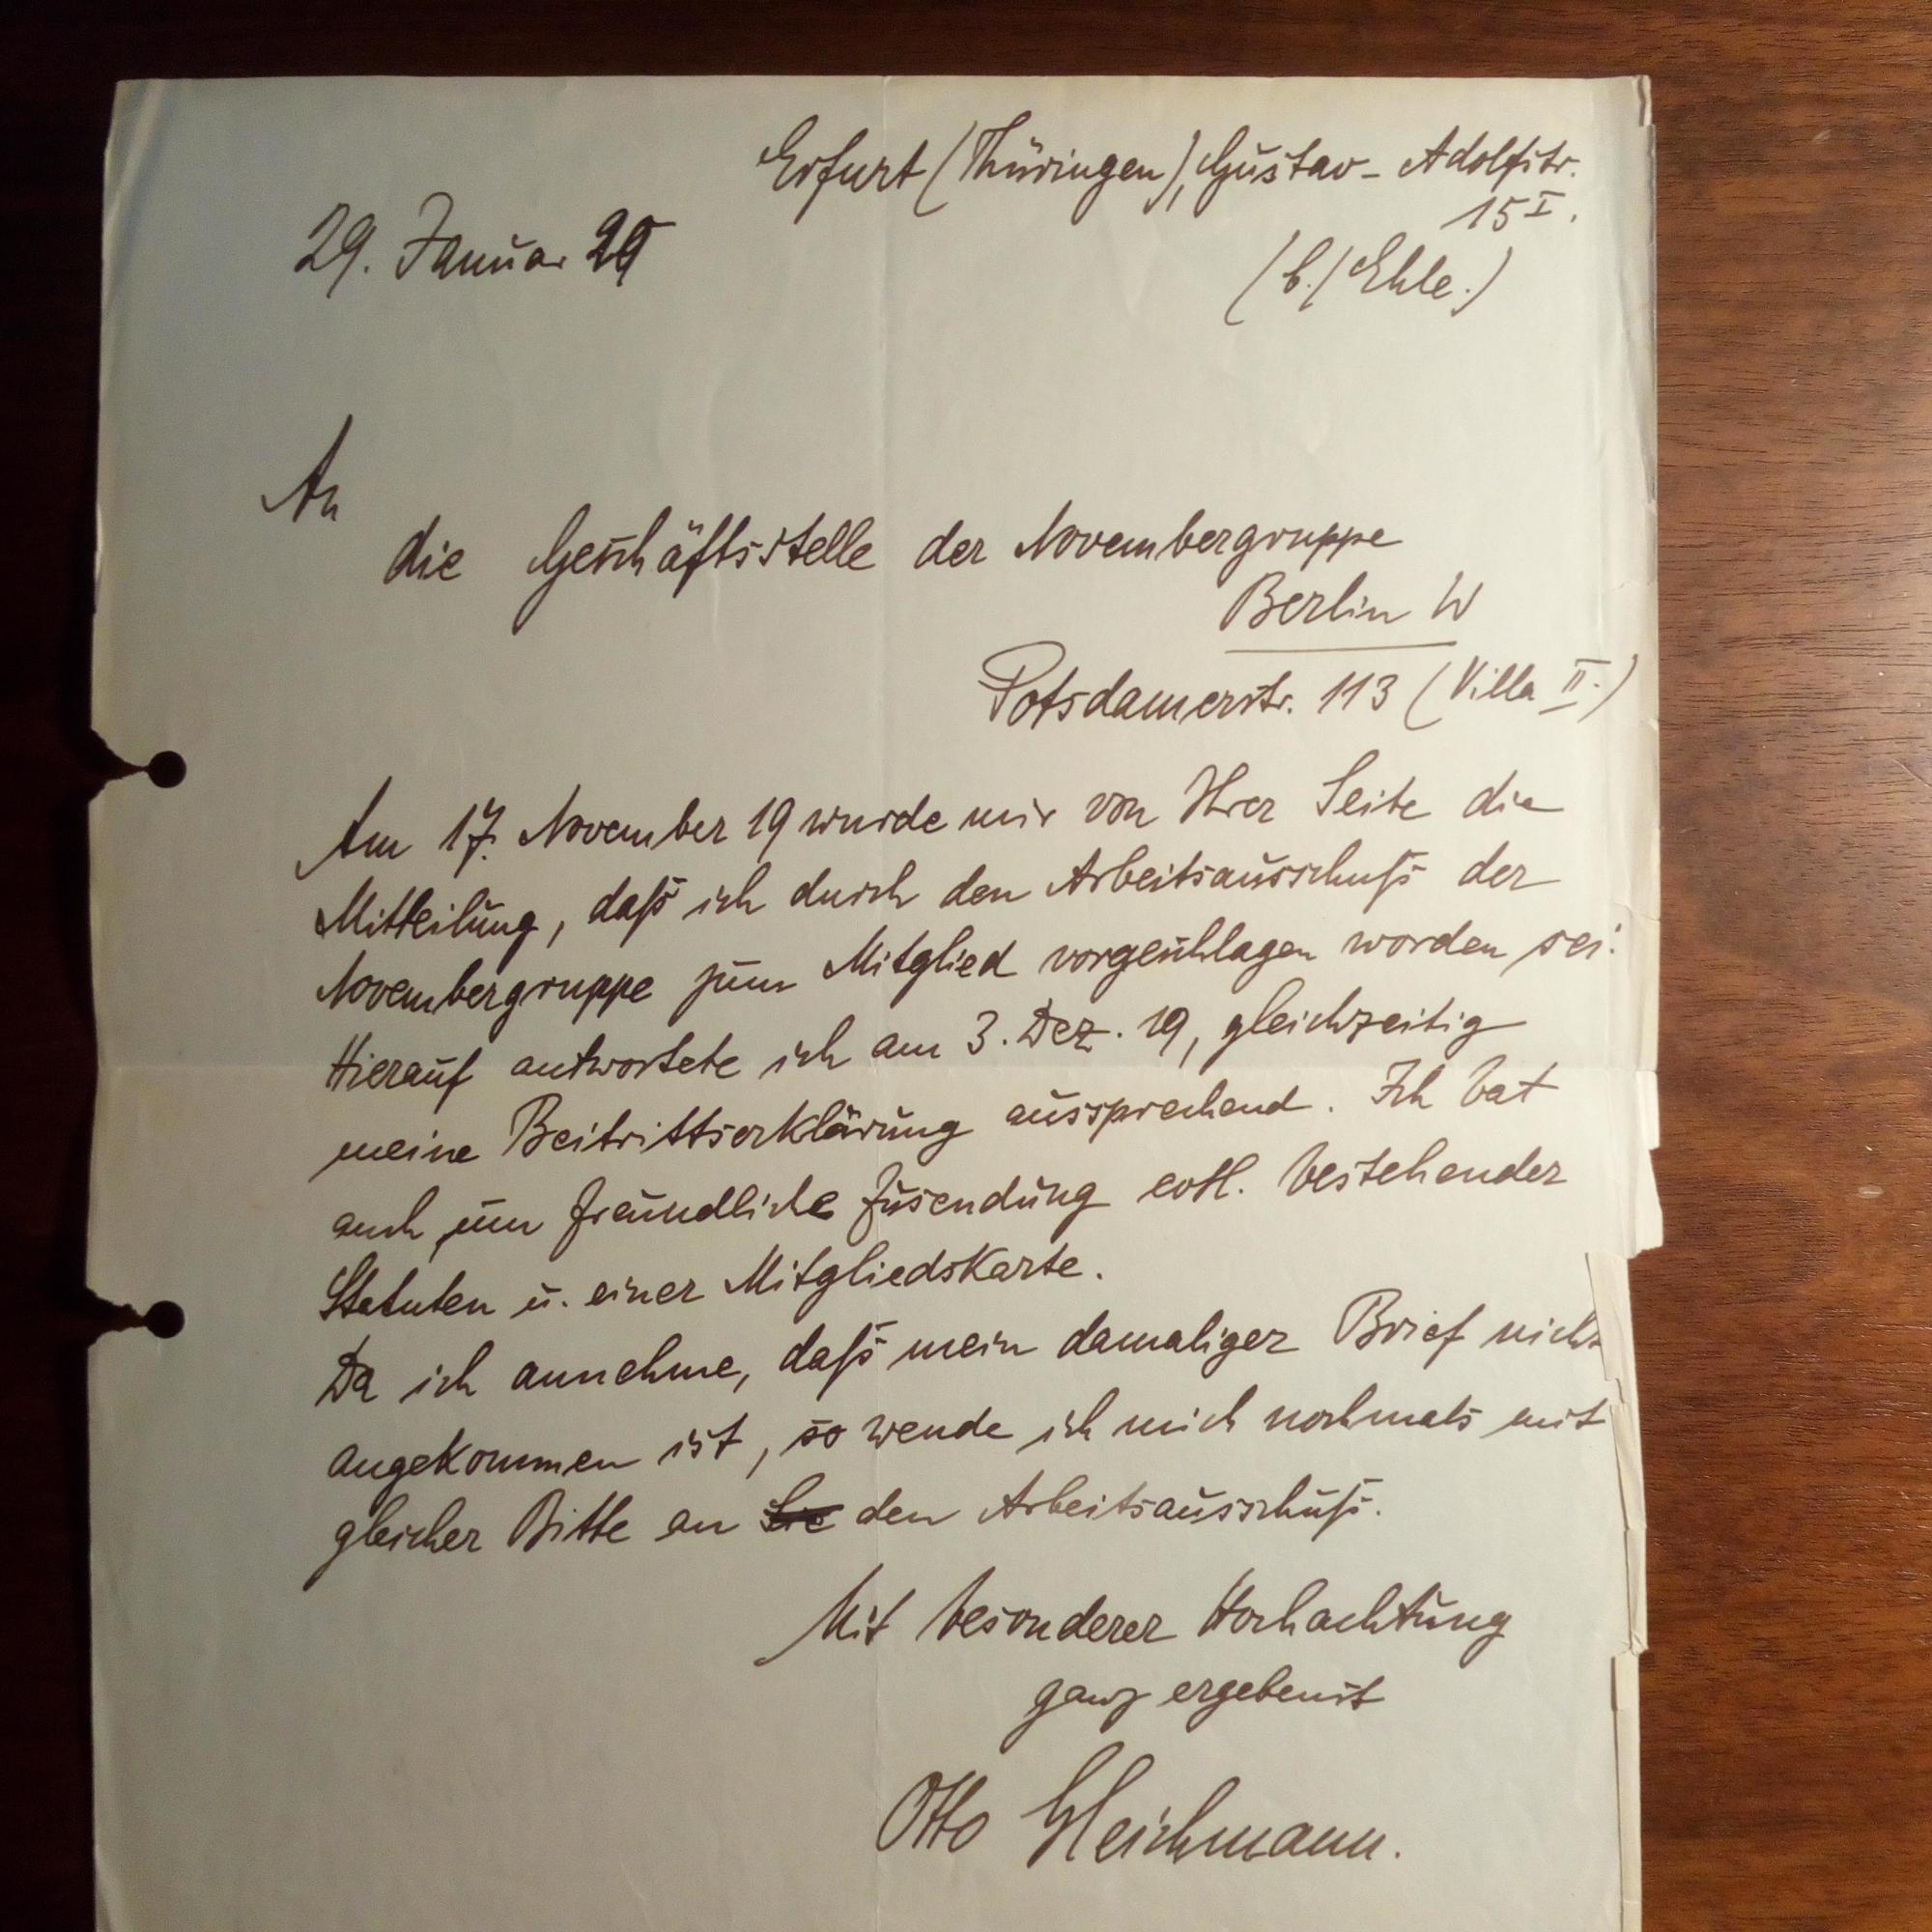 Erfurt (Thüringen), Gustav-Adolfstr.
15 I.
29. Januar 20
(b./Ehle.)
An
die Geschäftsstelle der Novembergruppe
Berlin W
Potsdamerstr. 113 (Villa II.)
Am 17. November 19 wurde mir von Ihrer Seite die
Mitteilung, daß ich durch den Arbeitsausschuß der
Novembergruppe zum Mitglied vorgeschlagen worden sei.
Hierauf antwortete ich am 3. Dez. 19, gleichzeitig
meine Beitrittserklärung aussprechend. Ich bat
auch um freundliche Zusendung evtl. bestehender
Statuten u. einer Mitgliedskarte.
Da ich annehme, daß mein damaliger Brief nicht
angekommen ist, so wende ich mich nochmals mit
gleicher Bitte an Sie den Arbeitsausschuß.
Mit besonderer Hochachtung
ganz ergebenst
Otto Gleichmann.